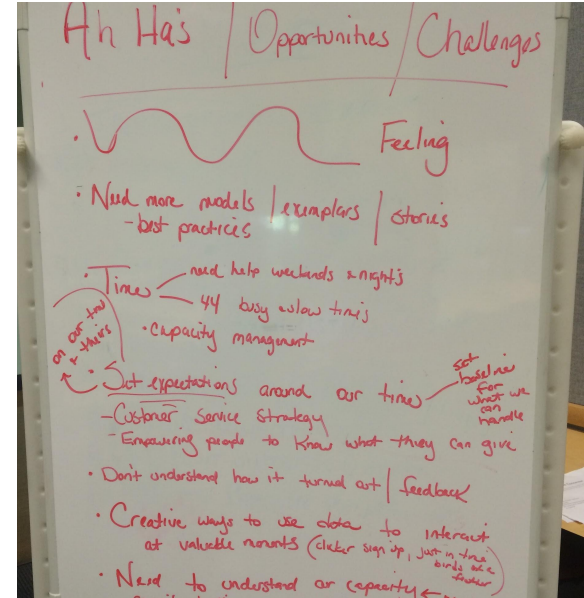 Ah Ha's | Opportunities / Challenges
Feeling
• Need more models | exemplars | stories
- best practices
• Time
need help weekends & nights
busy & slow times
• Capacity management
on our time
& theirs
• Set expectations around our time
set
baseline
for
what we
can
handle
- Customer Service Strategy
- Empowering people to know what they can give
• Don't understand how it turned out | feedback
• Creative ways to use data to interact
at valuable moments (clicker sign up, just in time
birds
• Need to understand our capacity